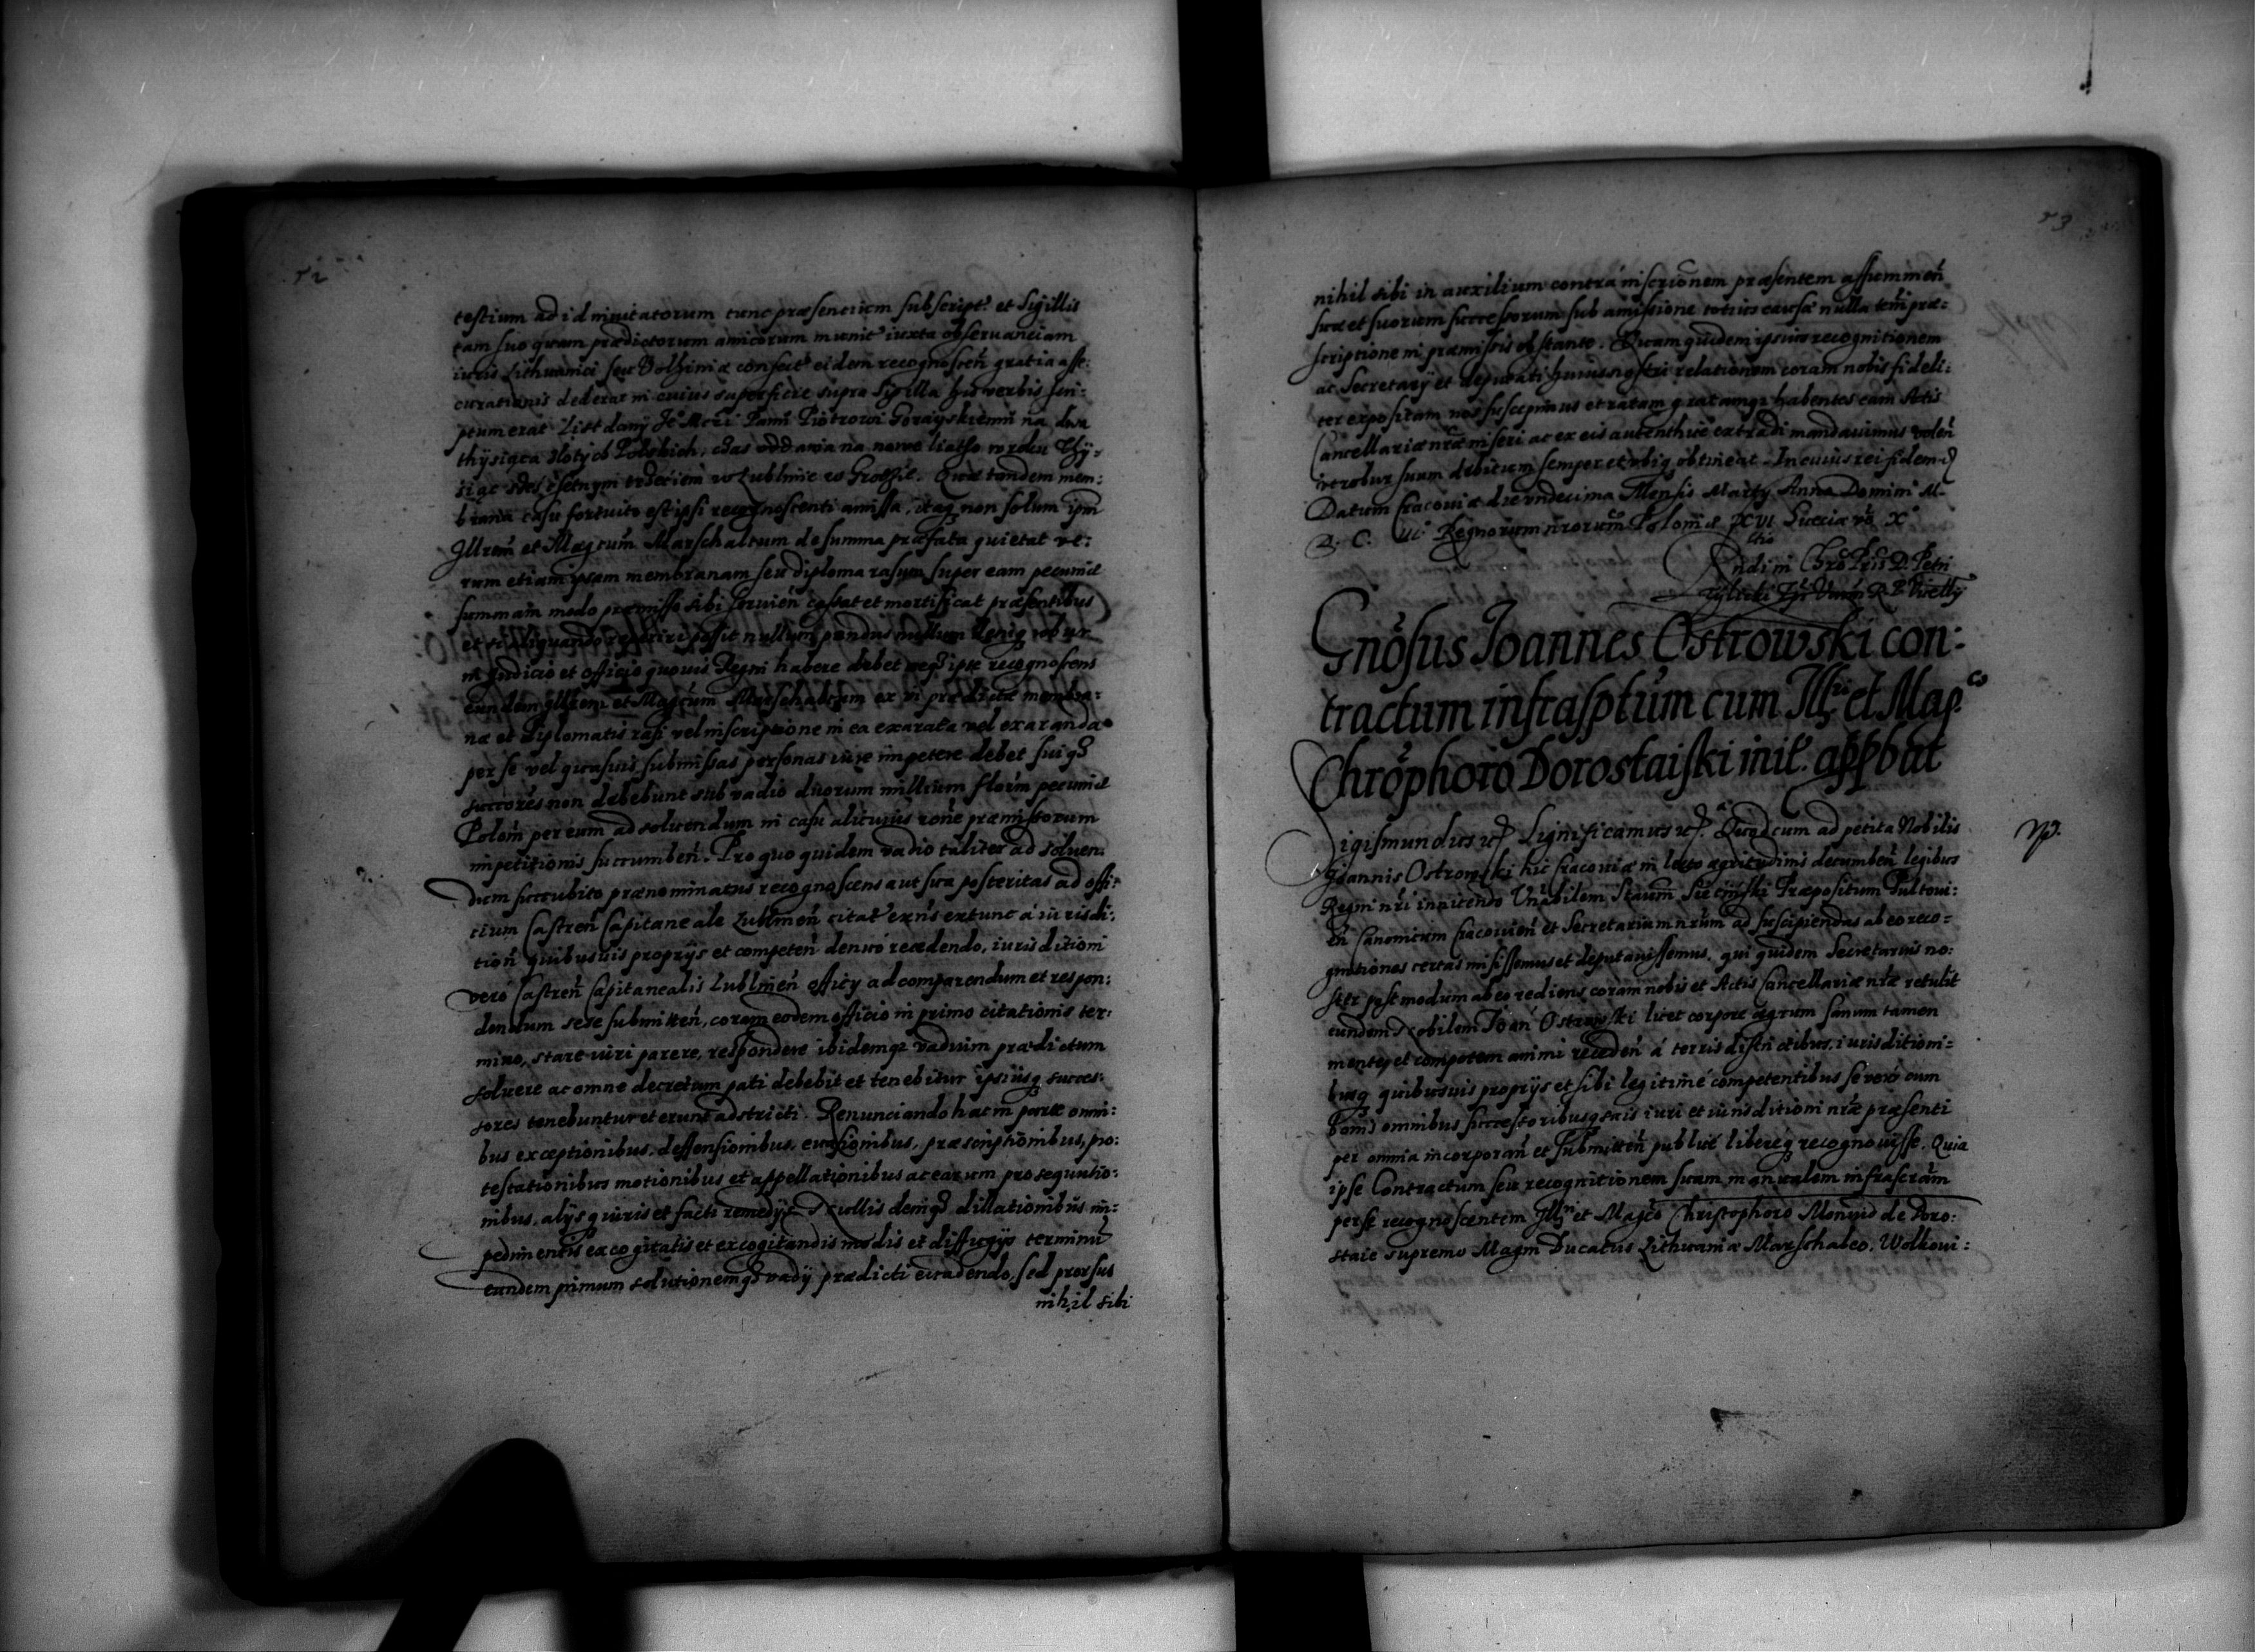 52
testium ad id inuitatorum tunc præsentium subscript? et Sigillis
tam suo quam prædictorum amicorum munit? iuxta obseruantiam
iuris Lithuanici seu Volhiniæ confect? eidem recognosceñ gratia asse:
curationis dederat in cuius superficie supra Sigilla his verbis scri:
ptum erat List dany Je Mczi Panu Piotrowi Gorayskiemu na dwa
thysiąca złotych Polskich, czas oddania na nowe liatho w roku Thy:
siąc szescsetnym trzeciem w Lublinie w Grodzie. Quæ tandem mem:
brana casu fortuito est ipsi recognoscenti amissa, itaq non solum ipm
Illrem et Magcum Marschalcum de summa præfata quietat ve:
rum etiam ipsam membranam seu diploma rasum super eam pecuniæ
summam modo præmisso sibi seruieñ cassat et mortificat præsentibus
et si aliquando reperiri possit nullum pondus nullum deniq robur
in Judicio et officio quouis Regni habere debet neq ipse recognoscens
eundem Illrem et Magcum Marschalcum ex vi prædictæ membra:
næ et diplomatis rasi vel inscriptione in ea exarata vel exaranda
per se vel quasuis submissas personas iure impetere debet suiq
succores non debebunt sub vadio duorum millium floreñ pecuniæ
Poloñ per eum ad soluendum in casu alicuius rone præmissorum
impetitionis succumbeñ. Pro quo quidem vadio taliter ad soluen:
dum succubito prænominatus recognoscens aut sua posteritas ad offi:
cium Castreñ Capitaneale Lublineñ citat? exn̄s extunc á iurisdi:
tioñ quibusuis proprijs et competeñ denuó recedendo, iurisditioni
veró Castreñ Capitanealis Lublineñ officy ad comparendum et respon:
dendum sese submitteñ, coram eodem officio in primo citationis ter:
mino, stare iuri parere, respondere ibidemq vadium prædictum
soluere ac omne decretum pati debebit et tenebitur ipsiusq succes:
sores tenebuntur et erunt adstricti. Renunciando hac in parte omni:
bus exceptionibus, deffensionibus, euasionibus, præscriptionibus, pro:
testationibus motionibus et appellationibus ac earum prosequutio:
nibus, alijsq iuris et facti remedijs Nullis deniq dillationibus im:
pedimentis excogitatis et excogitandis modis et diffugijs terminū
eundem primum solutionemq vadij prædicti euadendo, sed prorsus
nihil sibi
53
nihil sibi in auxilium contra inscrionem præsentem assummeñ
suæ et suorum successorum sub amissione totius causæ nulla tem̄ præ:
scriptione in præmissis obstante. Quam quidem ipsius recognitionem
ac Secretarij et deputati huius nostri relationem coram nobis fideli:
ter expositam nos suscepimus et ratam gratamq habentes eam Actis
Cancellariæ nræ inseri ac ex eis authentice extradi mandauimus voleñ
vt robur suum debitum semper et vbiq obtineat. In cuius rei fidem
Datum Cracouiæ die vndecima Mensis Marty Anno Domini M.
D. C. III° Regnorum nrorum Poloniæ XVI Sueciæ vō X°
Gnösus Joannes Ostrowski con:
tractum infrasptum cum Illri et Mag.co
Chröphoro Dorostaiski init. appbat
Sigismundus Significamus Quod cum ad petita Nobilis
Joannis Ostrowski hic Cracouiæ in lecto ægritudinis decumbeñ legibus
Regni nri innitendo Vnrabilem Præpositum Pultoui:
eñ Canonicum Cracouieñ et Secretarium nrum ad suscipiendas ab eo reco:
gnitiones certas misissemus et deputauissemus, qui quidem Secretarius no:
ster postmodum ab eo rediens coram nobis et Actis Cancellariæ nræ retulit
eundem Nobilem Joañ Ostrowski licet corpore ægrum sanum tamen
mente et compotem animi recedeñ á terris districtibus, iurisditioni:
busq quibusuis proprijs et sibi legitimé competentibus se vero cum
bonis omnibus successoribusq suis iuri et iurisditioni nræ præsenti
per omnia incorporañ et submitteñ publicé libereq recognouisse. Quia
ipse Contractum seu recognitionem suam manualem infrascram
per se recognoscentem Illri et Magco Christophoro Monwid de Doro:
staie supremo Magni Ducatus Lithuaniæ Marschalco, Wolkoui: